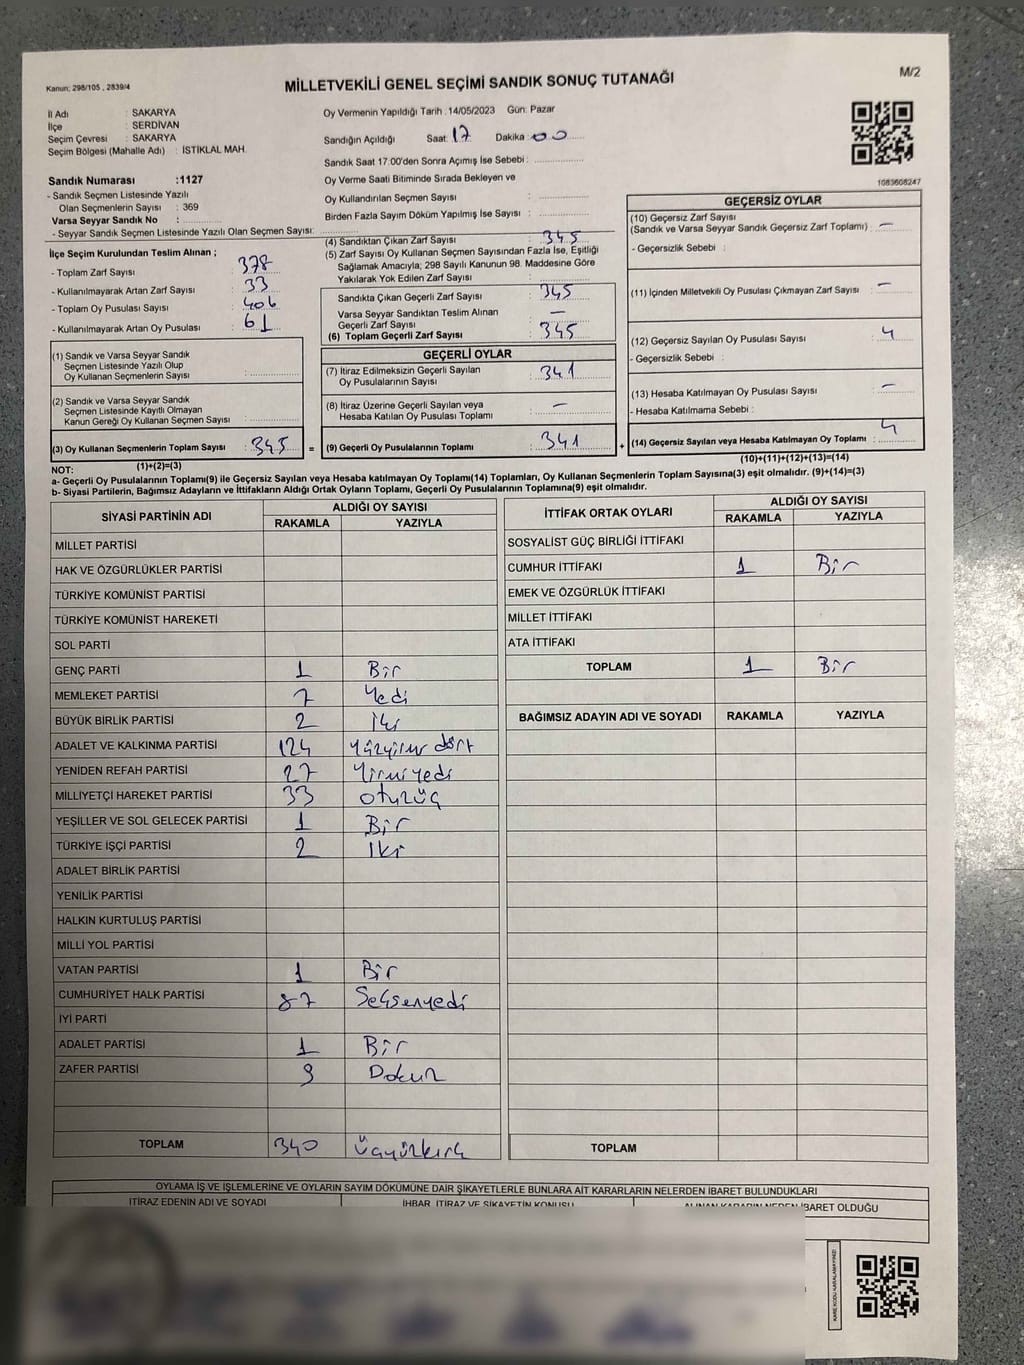 M/2
Kanun; 298/105 , 2839/4
MİLLETVEKİLİ GENEL SEÇİMİ SANDIK SONUÇ TUTANAĞI
İl Adı : SAKARYA
İlçe : SERDİVAN
Seçim Çevresi : SAKARYA
Seçim Bölgesi (Mahalle Adı) : İSTİKLAL MAH.
Oy Vermenin Yapıldığı Tarih :14/05/2023 Gün: Pazar
Sandığın Açıldığı Saat: 17 Dakika : 00
Sandık Saat 17:00'den Sonra Açımış İse Sebebi :
Oy Verme Saati Bitiminde Sırada Bekleyen ve
Oy Kullandırılan Seçmen Sayısı :
Birden Fazla Sayım Döküm Yapılmış İse Sayısı :
Sandık Numarası :1127
- Sandık Seçmen Listesinde Yazılı
Olan Seçmenlerin Sayısı : 369
Varsa Seyyar Sandık No :
- Seyyar Sandık Seçmen Listesinde Yazılı Olan Seçmen Sayısı:
1083608247
İlçe Seçim Kurulundan Teslim Alınan ;
- Toplam Zarf Sayısı : 378
- Kullanılmayarak Artan Zarf Sayısı : 33
- Toplam Oy Pusulası Sayısı : 406
- Kullanılmayarak Artan Oy Pusulası : 61
(1) Sandık ve Varsa Seyyar Sandık
Seçmen Listesinde Yazılı Olup
Oy Kullanan Seçmenlerin Sayısı :
(2) Sandık ve Varsa Seyyar Sandık
Seçmen Listesinde Kayıtlı Olmayan
Kanun Gereği Oy Kullanan Seçmen Sayısı :
(3) Oy Kullanan Seçmenlerin Toplam Sayısı : 345 =
(1)+(2)=(3)
(4) Sandıktan Çıkan Zarf Sayısı : 345
(5) Zarf Sayısı Oy Kullanan Seçmen Sayısından Fazla İse, Eşitliği
Sağlamak Amacıyla; 298 Sayılı Kanunun 98. Maddesine Göre
Yakılarak Yok Edilen Zarf Sayısı :
Sandıkta Çıkan Geçerli Zarf Sayısı : 345
Varsa Seyyar Sandıktan Teslim Alınan
Geçerli Zarf Sayısı : —
(6) Toplam Geçerli Zarf Sayısı : 345
GEÇERLİ OYLAR
(7) İtiraz Edilmeksizin Geçerli Sayılan
Oy Pusulalarının Sayısı : 341
(8) İtiraz Üzerine Geçerli Sayılan veya
Hesaba Katılan Oy Pusulası Toplamı : —
(9) Geçerli Oy Pusulalarının Toplamı : 341 +
GEÇERSİZ OYLAR
(10) Geçersiz Zarf Sayısı
(Sandık ve Varsa Seyyar Sandık Geçersiz Zarf Toplamı) : —
- Geçersizlik Sebebi :
(11) İçinden Milletvekili Oy Pusulası Çıkmayan Zarf Sayısı : —
(12) Geçersiz Sayılan Oy Pusulası Sayısı : 4
- Geçersizlik Sebebi :
(13) Hesaba Katılmayan Oy Pusulası Sayısı : —
- Hesaba Katılmama Sebebi :
(14) Geçersiz Sayılan veya Hesaba Katılmayan Oy Toplamı : 4
(10)+(11)+(12)+(13)=(14)
NOT:
a- Geçerli Oy Pusulalarının Toplamı(9) ile Geçersiz Sayılan veya Hesaba katılmayan Oy Toplamı(14) Toplamları, Oy Kullanan Seçmenlerin Toplam Sayısına(3) eşit olmalıdır. (9)+(14)=(3)
b- Siyasi Partilerin, Bağımsız Adayların ve İttifakların Aldığı Ortak Oyların Toplamı, Geçerli Oy Pusulalarının Toplamına(9) eşit olmalıdır.
SİYASİ PARTİNİN ADI ALDIĞI OY SAYISI
RAKAMLA YAZIYLA
MİLLET PARTİSİ
HAK VE ÖZGÜRLÜKLER PARTİSİ
TÜRKİYE KOMÜNİST PARTİSİ
TÜRKİYE KOMÜNİST HAREKETİ
SOL PARTİ
GENÇ PARTİ 1 Bir
MEMLEKET PARTİSİ 7 Yedi
BÜYÜK BİRLİK PARTİSİ 2 İki
ADALET VE KALKINMA PARTİSİ 124 Yüzyirmi dört
YENİDEN REFAH PARTİSİ 27 Yirmiyedi
MİLLİYETÇİ HAREKET PARTİSİ 33 otuzüç
YEŞİLLER VE SOL GELECEK PARTİSİ 1 Bir
TÜRKİYE İŞÇİ PARTİSİ 2 İki
ADALET BİRLİK PARTİSİ
YENİLİK PARTİSİ
HALKIN KURTULUŞ PARTİSİ
MİLLİ YOL PARTİSİ
VATAN PARTİSİ 1 Bir
CUMHURİYET HALK PARTİSİ 87 Seksenyedi
İYİ PARTİ
ADALET PARTİSİ 1 Bir
ZAFER PARTİSİ 9 Dokuz
TOPLAM 340 Üçyüzkırk
İTTİFAK ORTAK OYLARI ALDIĞI OY SAYISI
RAKAMLA YAZIYLA
SOSYALİST GÜÇ BİRLİĞİ İTTİFAKI
CUMHUR İTTİFAKI 1 Bir
EMEK VE ÖZGÜRLÜK İTTİFAKI
MİLLET İTTİFAKI
ATA İTTİFAKI
TOPLAM 1 Bir
BAĞIMSIZ ADAYIN ADI VE SOYADI RAKAMLA YAZIYLA
TOPLAM
OYLAMA İŞ VE İŞLEMLERİNE VE OYLARIN SAYIM DÖKÜMÜNE DAİR ŞİKAYETLERLE BUNLARA AİT KARARLARIN NELERDEN İBARET BULUNDUKLARI
İTİRAZ EDENİN ADI VE SOYADI İHBAR, İTİRAZ VE ŞİKAYETİN KONUSU ALINAN KARARIN NEDEN İBARET OLDUĞU
KARE KODU KARALAMAYINIZ!